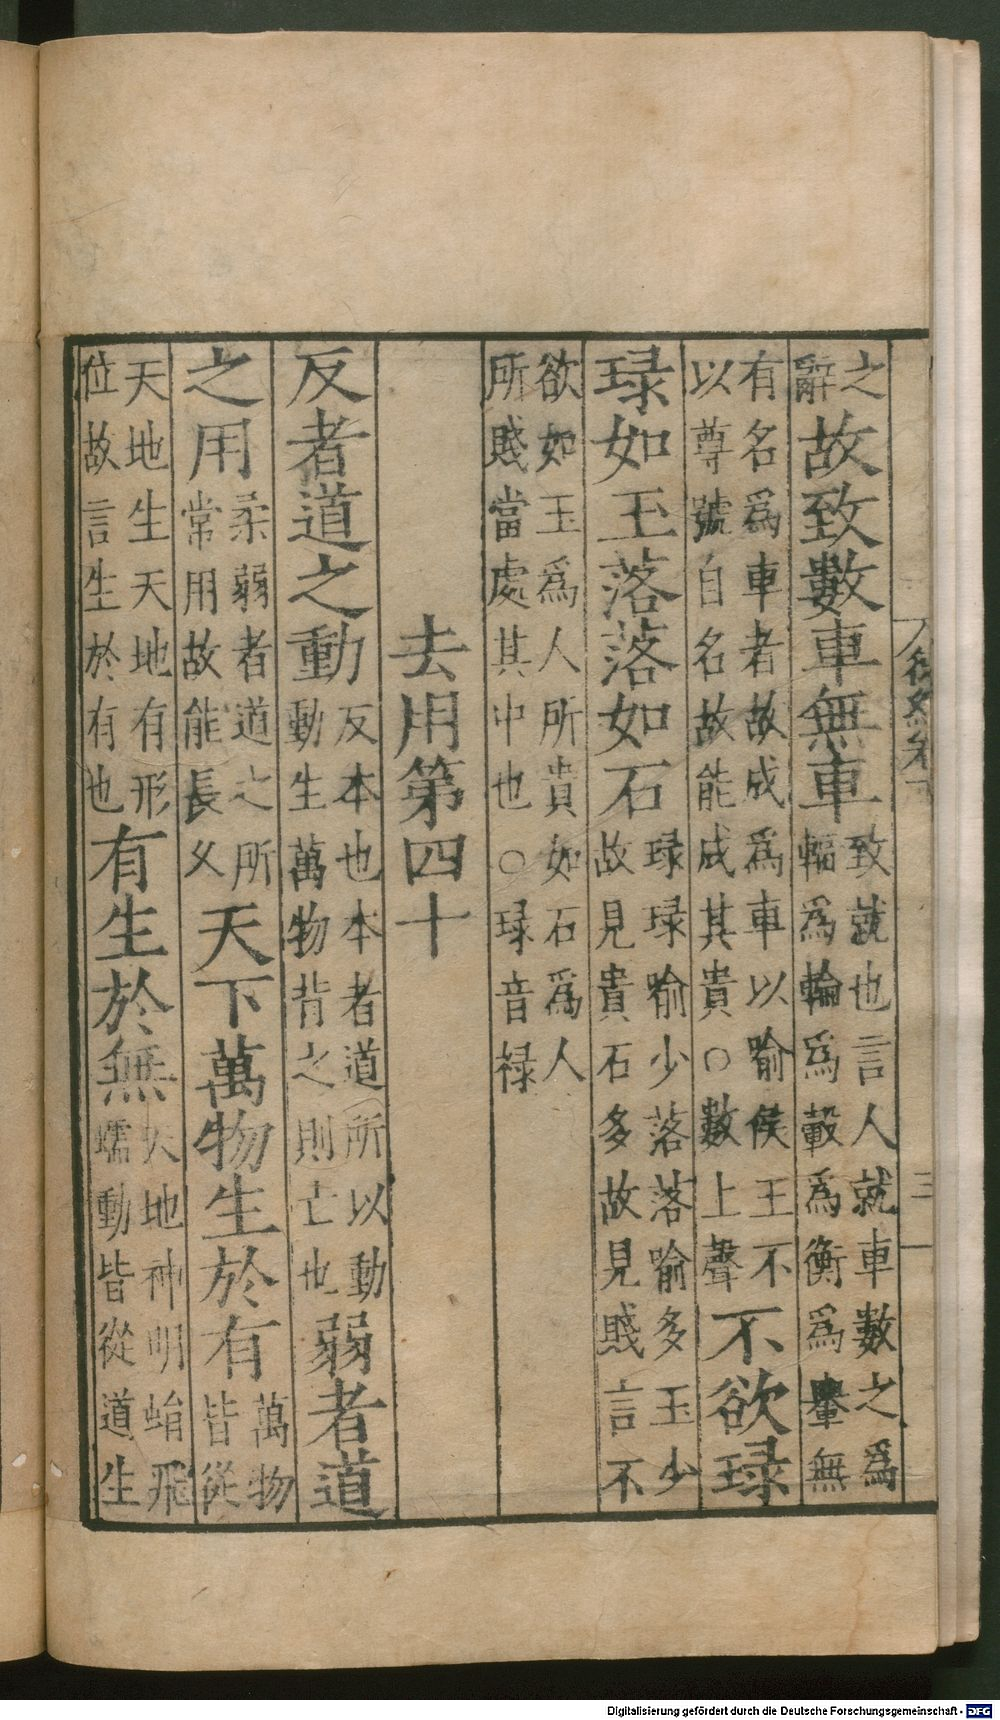 之辭故致數車無車致就也言人就車數之爲輻爲輪爲轂爲衡爲轝無
有名爲車者故成爲車以喻侯王不以尊號自名故能成其貴○數上聲不欲琭
琭如玉落落如石琭琭喻少落落喻多玉少故見貴石多故見賤言不
欲如玉爲人所貴如石爲人所賤當處其中也○琭音禄
去用第四十
反者道之動反本也本者道所以動動生萬物背之則亡也弱者道
之用柔弱者道之所常用故能長乆天下萬物生於有萬物皆從
天地生天地有形位故言生於有也有生於無天地神明蜎飛蠕動皆從道生
三
Digitalisierung gefördert durch die Deutsche Forschungsgemeinschaft - DFG